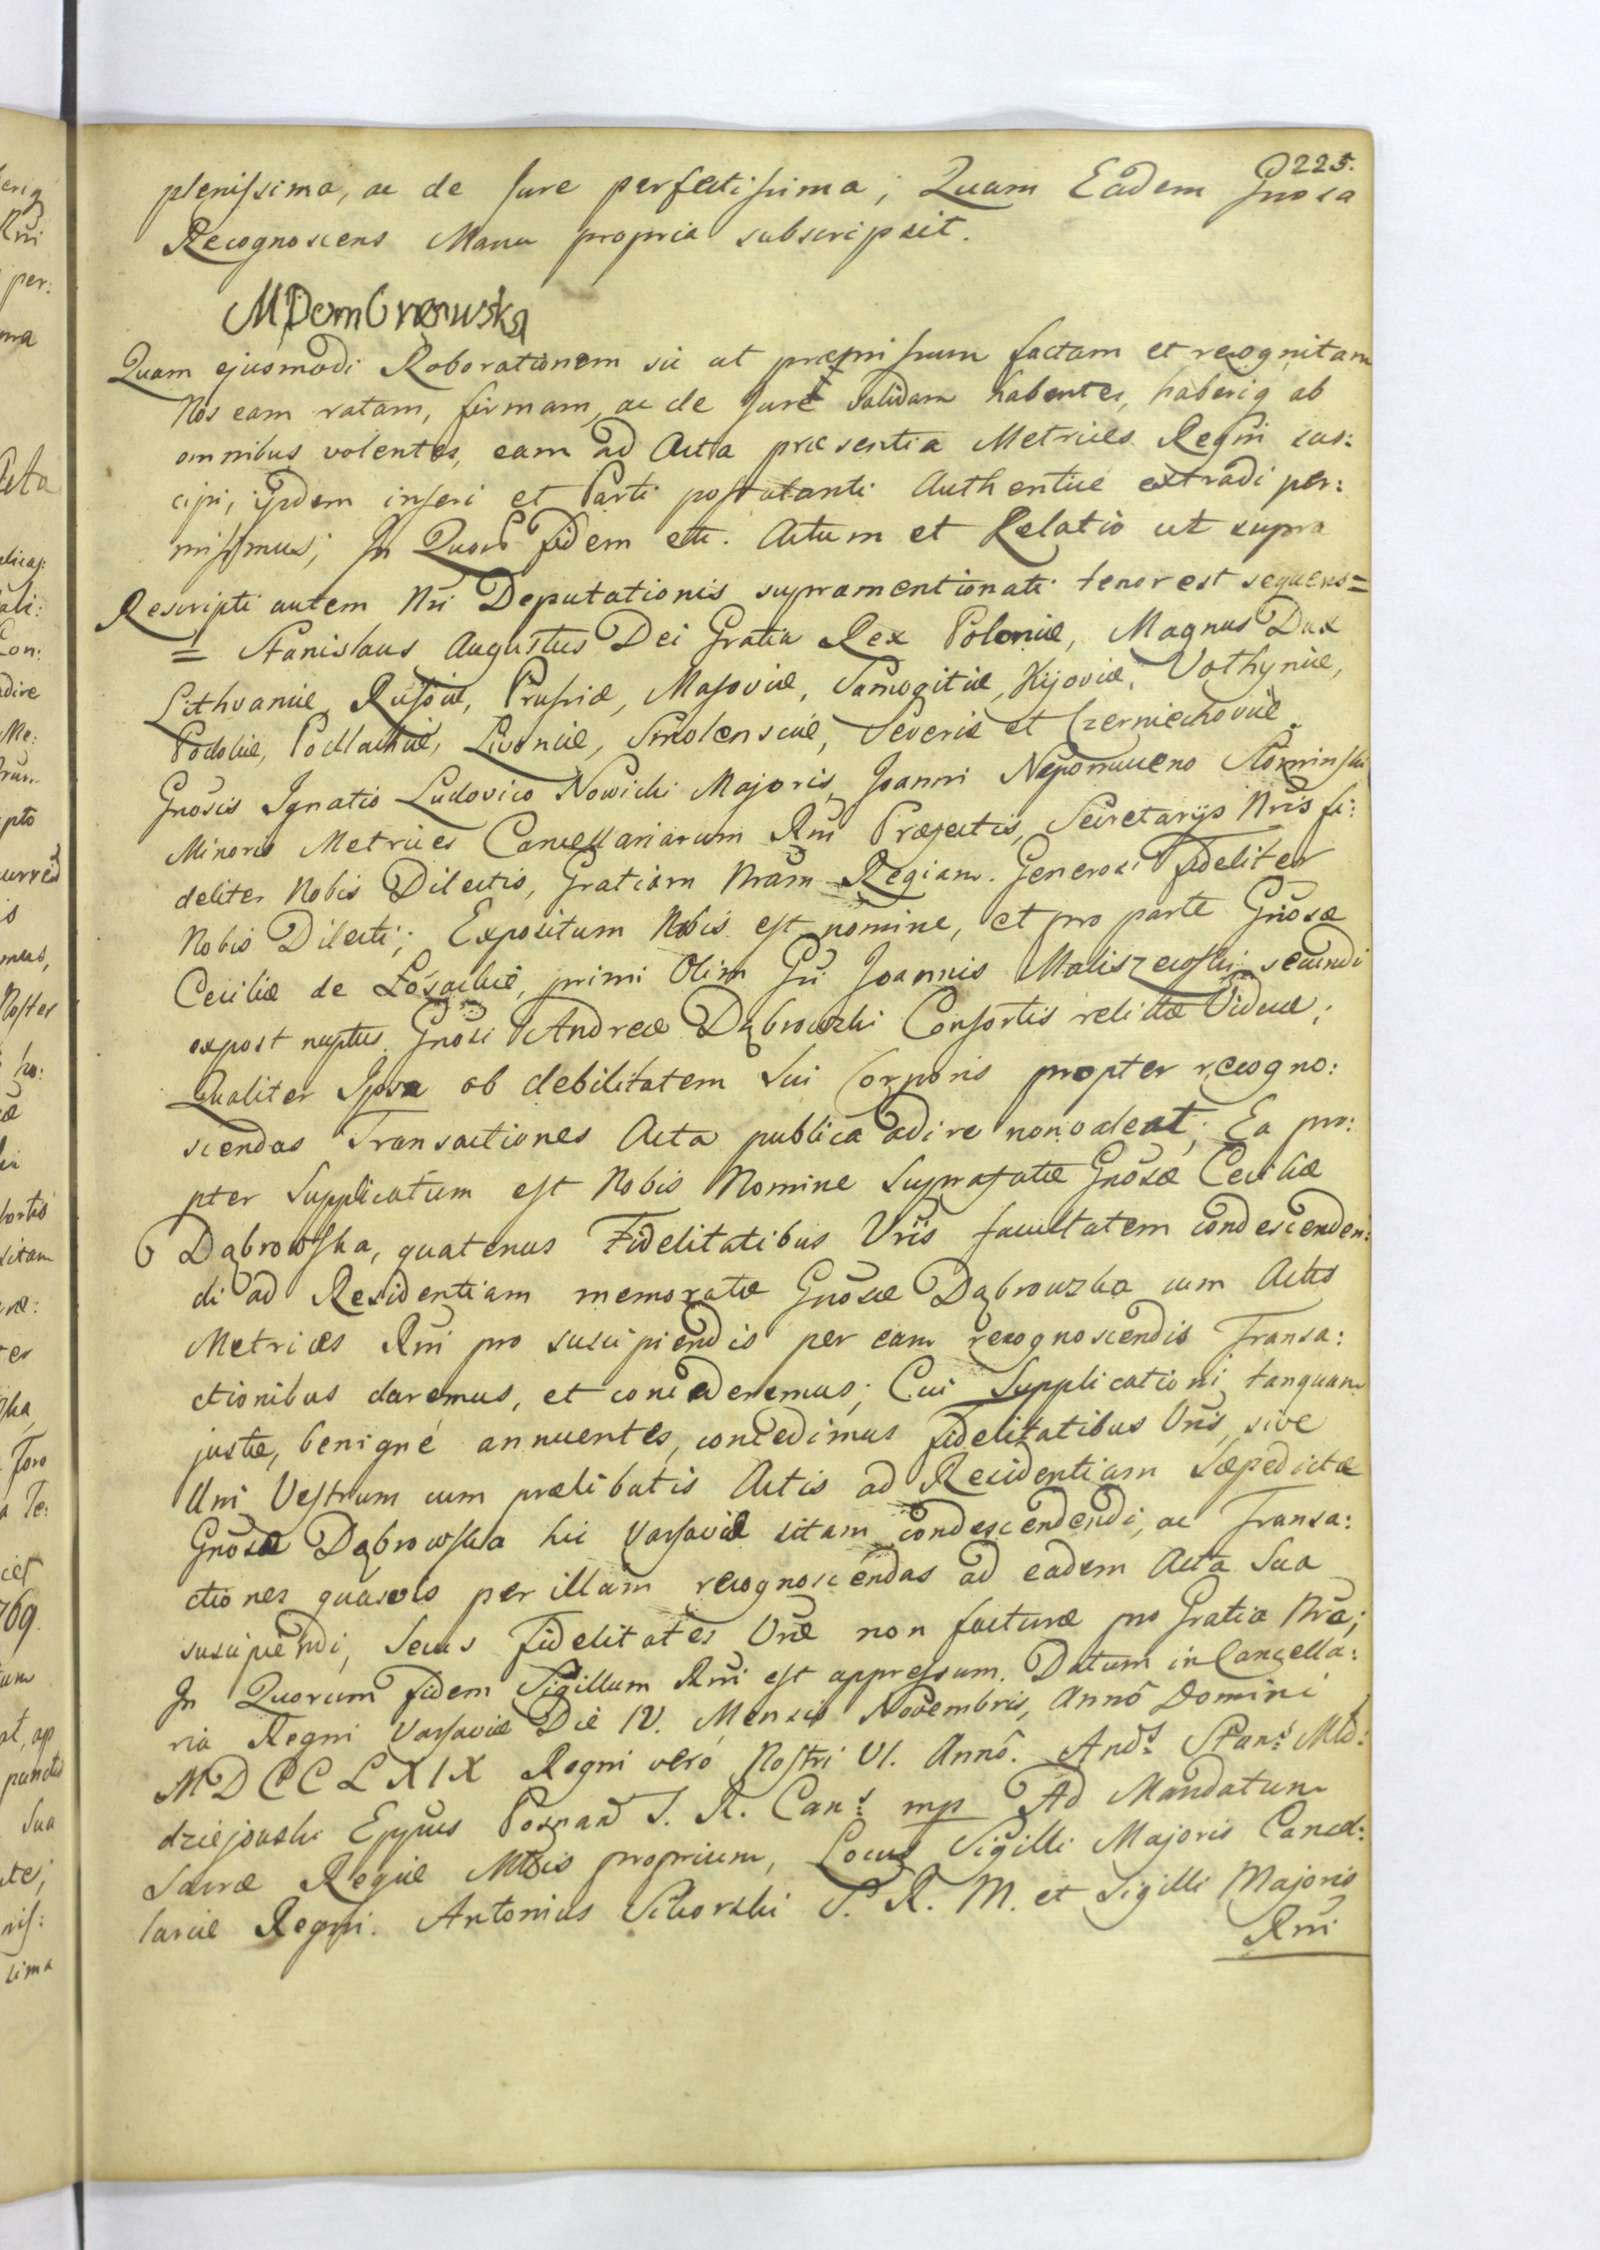 225.
plenissima, ac de Jure perfectissima; Quam Eadem Gnosa
Recognoscens Manu propria subscripsit.
MDombrowska
Quam ejusmodi Roborationem sic ut præmissum factam et recognitam
Nos eam ratam, firmam, ac de Jure validam habentes, haberiq ab
omnibus volentes, eam ad Acta præsentia Metrices Regni sus:
cipi, ijsdem inseri et Parti postulanti Authentice extradi per:
misimus; In Quorũ fidem etc. Actum et Relatio ut supra
Rescripti autem Nri Deputationis supramentionati tenor est sequens=
= Stanislaus Augustus Dei Gratia Rex Poloniæ, Magnus Dux
Lithvaniæ, Russiæ, Prussiæ, Masoviæ, Samogitiæ, Kijoviæ, Volhyniæ,
Podoliæ, Podlachiæ, Livoniæ, Smolensciæ, Severiæ et Czerniechoviæ.
Gnosis Ignatio Ludovico Nowicki Majoris, Joanni Nepomuceno Słominski
Minoris Metrices Cancellariarum Rni Præfectis, Secretarijs Nris fi:
deliter Nobis Dilectis, Gratiam Nram Regiam. Generosi Fideliter
Nobis Dilecti; Expositum Nobis est nomine, et pro parte Gnosæ
Ceciliæ de Łósackie, primi Olim Gñi Joannis Maliszewski secundi
expost nuptus Gnosi Andreæ Dąbrowski Consortis relictæ Viduæ;
Qualiter Ipsa ob debilitatem sui Corporis propter recogno:
scendas Transactiones Acta publica adire non valeat; Ea pro:
pter Supplicatum est Nobis Nomine Suprafatæ Gnosæ Ceciliæ
Dąbrowska, quatenus Fidelitatibus Vris facultatem condescenden:
di ad Residentiam memoratæ Gnosæ Dąbrowska cum Actis
Metrices Rni pro suscipiendis per eam recognoscendis Transa:
ctionibus daremus, et concederemus; Cui Supplicationi tanquam
justæ, benigné annuentes, concedimus Fidelitatibus Vris, sive
Uni Vestrum cum prælibatis Actis ad Residentiam Sæpedictæ
Gnosæ Dąbrowska hic Varsaviæ sitam condescendendi, ac Transa:
ctiones quasvis per illam recognoscendas ad eadem Acta Sua
suscipiendi, Secus Fidelitates Vræ non facturæ pro Gratia Nra;
In Quorum fidem Sigillum Rni est appressum. Datum in Cancella:
ria Regni Varsaviæ Die IV. Mensis Novembris, Annô Domini
MDCCLXIX Regni veró Nostri VI. Annô. Ands: Stans: Mło:
dziejowski Eppus Posnan S. R. Cans: mp Ad Mandatum
Sacræ Regiæ Mttis proprium, Locus Sigilli Majoris Cancel:
lariæ Regni. Antonius Sikorski S. R. M. et Sigilli Majoris
Rni